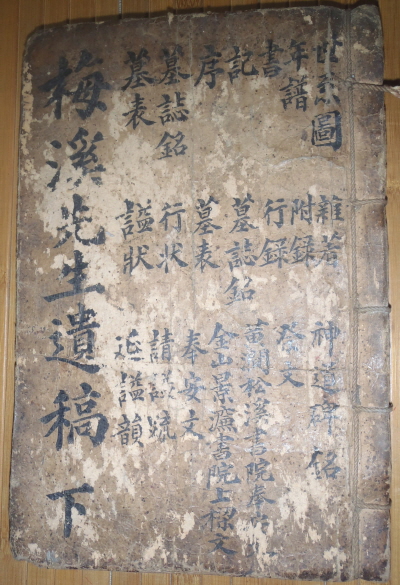 世系圖
年譜
書
記
序
墓誌銘
墓表
雜著
附錄
行錄
墓誌銘
墓表
行狀
諡狀
神道碑銘
祭文
黃澗松溪書院奉
金山景濂書院上樑文
奉安文
請諡疏
延諡韻
梅溪先生遺稿 下